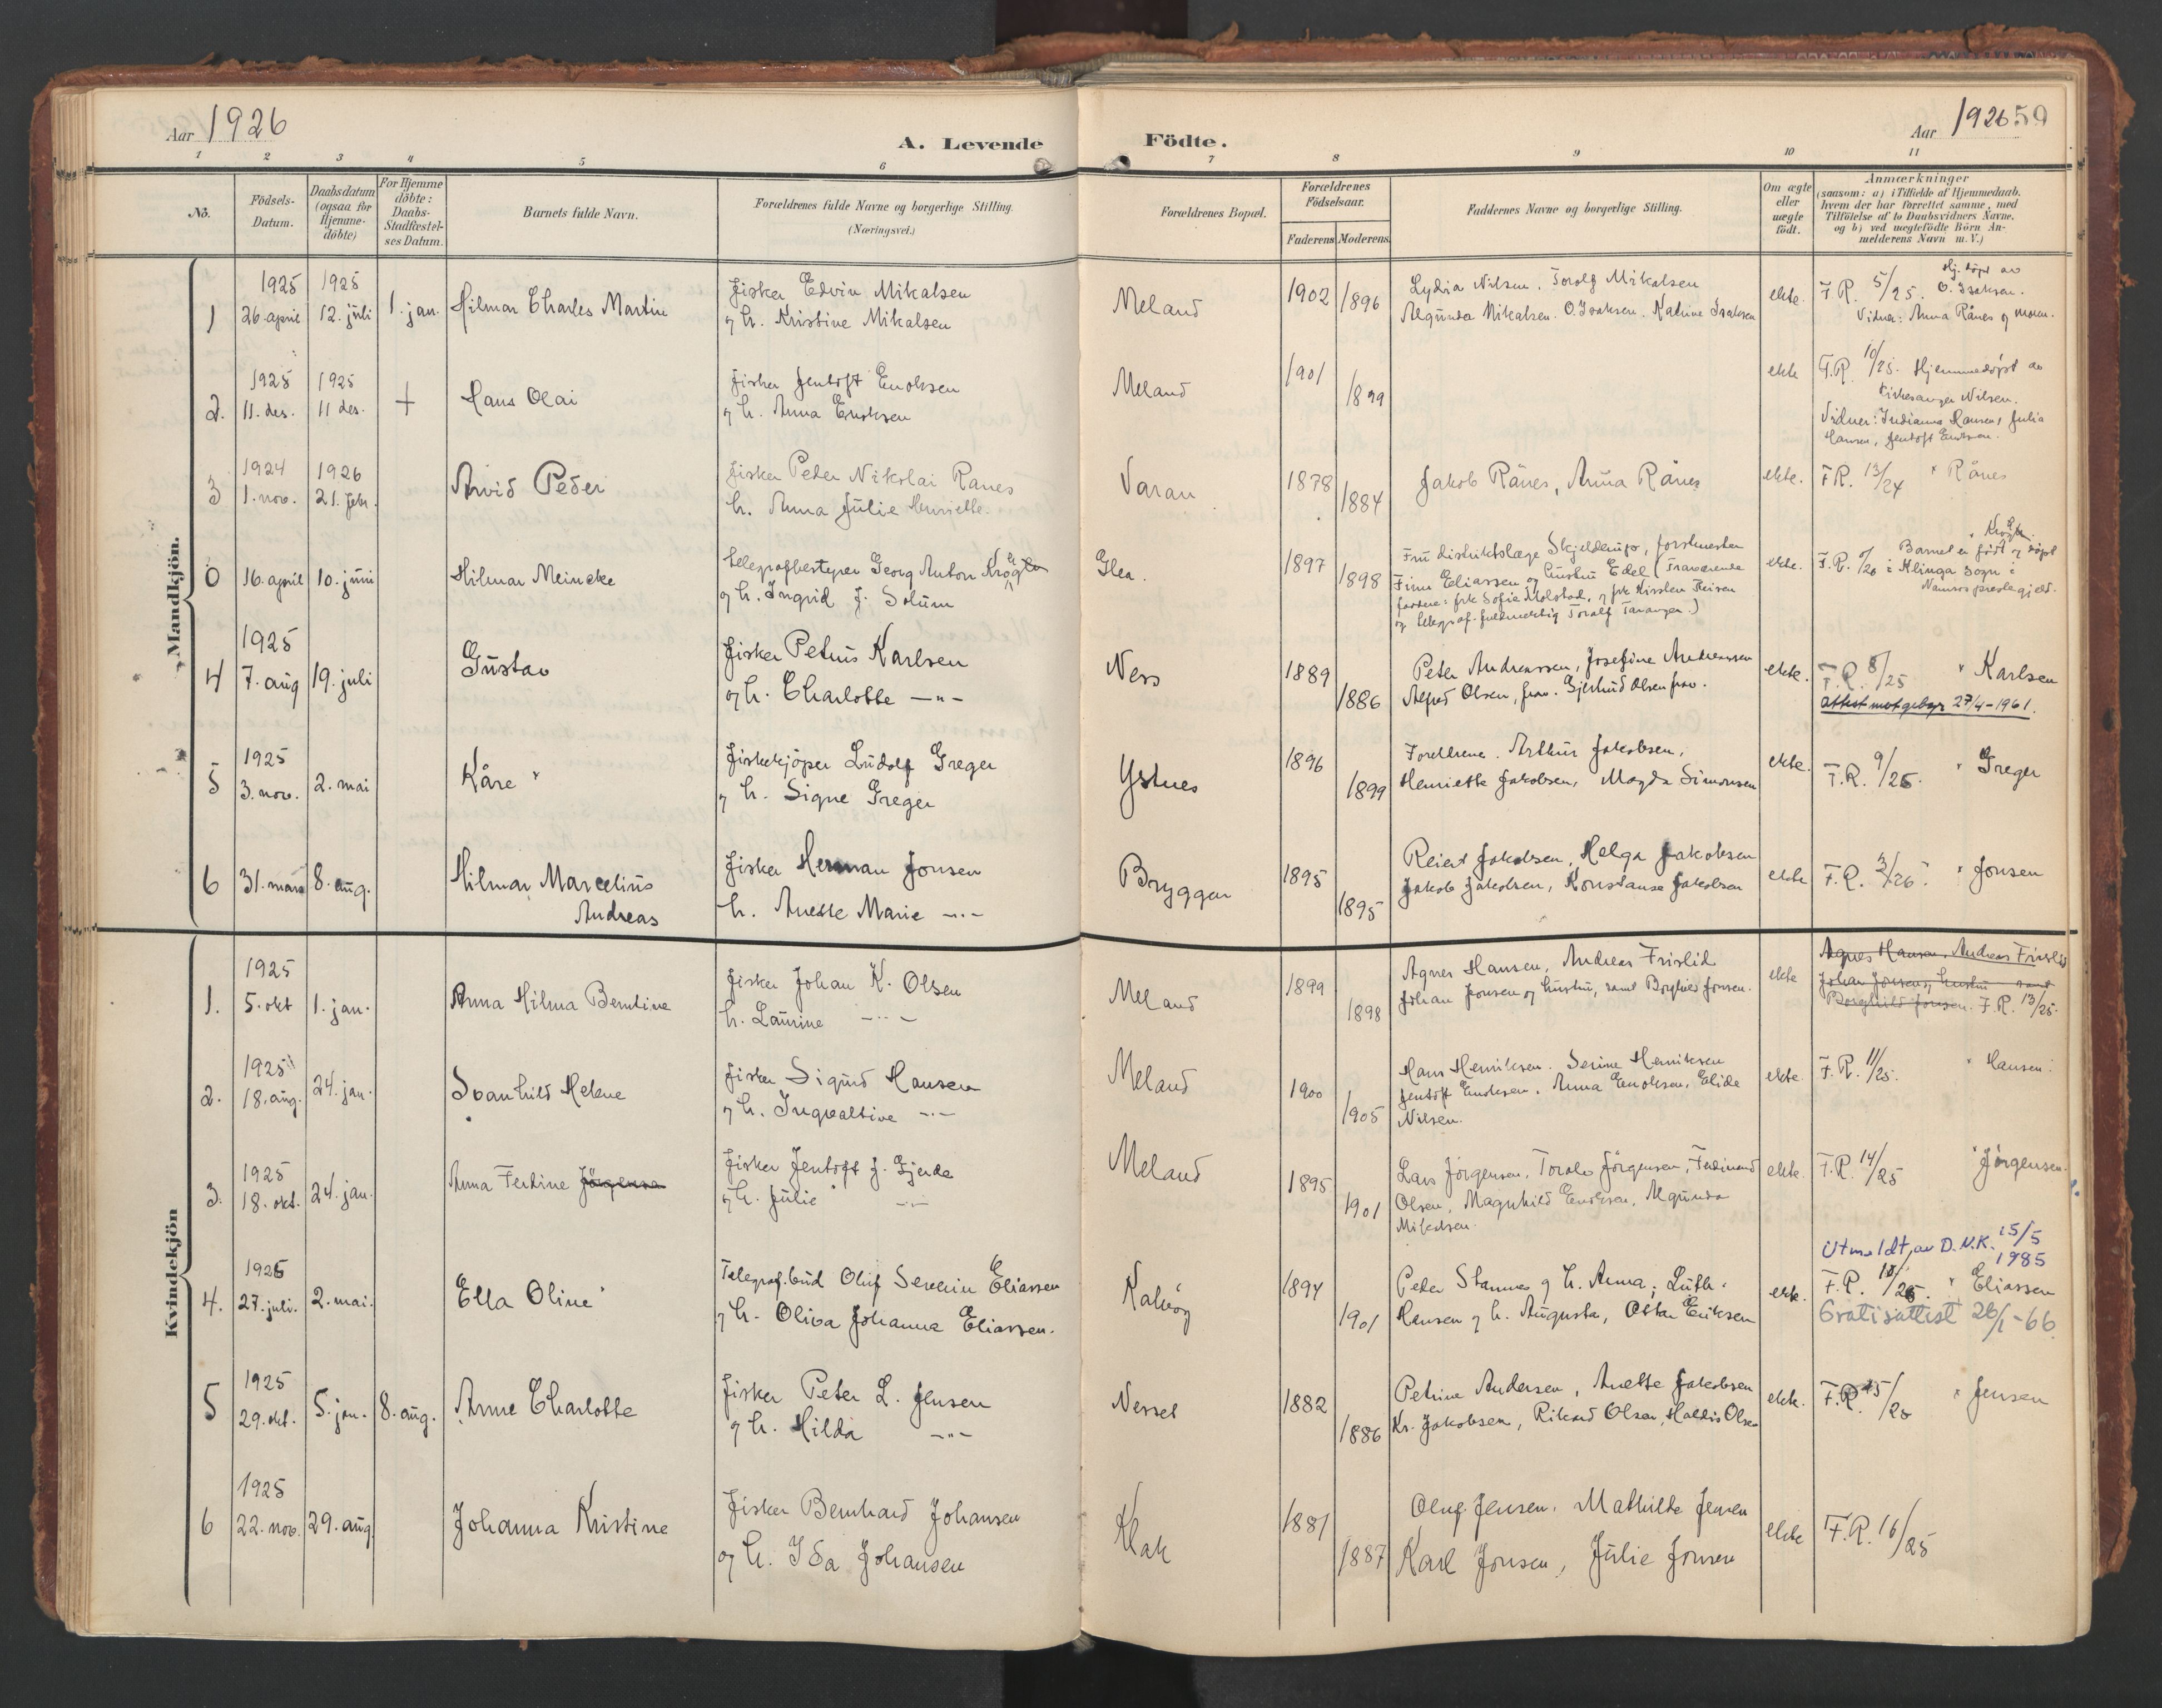 Aar 1926
A. Levende
Födte.
Aar 1926
59
1 2 3 4 5 6 7 8 9 10 11
No.
Födsels-
Datum.
Daabsdatum
(ogsaa for
Hjemme-
döbte)
For Hjemme
döbte:
Daabs-
Stadfæstel-
ses Datum.
Barnets fulde Navn.
Forældrenes fulde Navne og borgerlige Stilling.
(Næringsvei.)
Forældrenes Bopæl.
Forældrenes
Födselsaar.
Faderens Moderens
Faddernes Navne og borgerlige Stilling.
Om ægte
eller
uægte
födt.
Anmærkninger
(saasom: a) i Tilfælde af Hjemmedaab,
hvem der har forrettet samme, med
Tilföielse af to Daabsvidners Navne,
og b) ved uægtefödte Börn An-
melderens Navn m. V.)
Mandkjön.
1
1925
26. april
1925
12. juli
1. jan.
Hilmar Charles Martin
fisker Edvin Mikalsen
og h. Kristine Mikalsen
Meland
1902
1896
Lydia Nilsen. Torolf Mikalsen
Algunda Mikalsen. O. Isaksen. Katrine Isaksen
ekte.
F.R. 5/25. Hj. døpt av
O. Isaksen.
Vidner: Anna Rånes og moren.
2.
1925
11. des.
1925
11 des.
+
Hans Olai
fisker Jentoft Enoksen
og h. Anna Enoksen
Meland
1901
1899
ekte
F.R. 10/25. Hjemmedøpt av
kirkesanger Nilsen.
Vidner: Indianna Hansen, Julia
Hansen, Jentoft Enoksen.
3
1924
1. nov.
1926
21. febr.
Arvid Peder
fisker Peder Nikolai Rånes
h. Anna Julie Henriette.
Varan
1878
1884
Jakob Rånes, Anna Rånes
ekte.
F.R. 13/24 × Rånes
0
16. april
10. juni
Hilmar Meincke
telegrafbestyrer Georg Anton Krogh
og h. Ingrid J. Solum
Glea.
1897
1898
Fru distriktslæge Skjeldrup, forstmester
Finn Eliassen og hustru Edel (fraværende
faddere: frk Sofie Molstad, og frk Kirsten Theisen
og telegraf-fuldmektig Toralf Taranger.)
ekte.
× Krogh.
Barnet er født og døpt
i Klinga sogn i
Namsos prestegjeld.
4
1925
7. aug
19. juli
Gustav
fisker Petrus Karlsen
og h. Charlotte —"—
Ness
1889
1886
Peter Andreassen, Josefine Andreassen
Alfred Olsen, frav. Gjertrud Olsen frav.
ekte.
F.R. 8/25 × Karlsen
attest mot gebyr 27/4-1961.
5
1925
3. nov.
2. mai
Kåre ×
fiskekjøper Ludolf Greger
og h. Signe Greger
Ystnes
1896
1899
Foreldrene. Arthur Jakobsen,
Henriette Jakobsen, Magda Simonsen
ekte.
F.R. 9/25. × Greger
6
31. mars
8. aug.
Hilmar Marcelius
Andreas
fisker Herman Jonsen
h. Anette Marie —"—
Bryggen
1895
1895
Reiert Jakobsen, Helga Jakobsen
Jakob Jakobsen, Konstanse Jakobsen
ekte
F.R. 3/26. × Jonsen
Kvindekjön
1.
1925
5. okt
1. jan.
Anna Hilma Berntine
fisker Johan K. Olsen
h. Laurine —"—
Meland
1899
1898
Agnes Hansen, Andreas Frislid
Johan Jonsen og hustru, samt Borghild Jonsen.
ekte
Agnes Hansen, Andreas Frislid
Johan Jonsen og hustru samt
Borghild Jonsen. F.R. 13/25.
2.
1925
18. aug.
24. jan.
Svanhild Helene
fisker Sigurd Hansen
og h. Ingvaldine —"—
Meland
1900
1905
Hans Henriksen. Serine Henriksen
Jentoft Enoksen. Anna Enoksen, Elide
Nilsen.
ekte.
F.R. 11/25. × Hansen.
3.
1925
18. okt.
24. jan.
Anna Ferdine Jörgensen
fisker Jentoft J. Gjerde
og h. Julie —"—
Meland
1895
1901
Lars Jörgensen, Torolv Jörgensen, Ferdinand
Olsen, Magnhild Enoksen, Algunda
Mikalsen.
ekte.
F.R. 14/25 × Jörgensen.
4.
1925
27. juli.
2. mai.
Ella Oline ×
Telegraf.bud Oluf Severin Eliassen
og h. Oliva Johanna Eliassen.
Kalvöy
1894
1901
Peder Stannes og h. Anna; Luth.
Hansen og h. Augusta, Ottar Eriksen
ekte.
Utmeldt av D.N.K. 15/5
1985
F.R. 18/25. × Eliassen
Gratisattest 26/1-66.
5
1925
29. okt.
5. jan.
8. aug.
Anne Charlotte
fisker Peter L. Jensen
og h. Hilda —"—
Nesset
1882
1886
Petrine Andersen, Anette Jakobsen
Kr. Jakobsen, Rikard Olsen, Haldis Olsen
ekte.
F.R. 15/25 × Jensen
6
1925
22. nov.
29. aug
Johanna Kristine
fisker Bernhard Johansen
og h. Ida Johansen
Klak
1881
1887
Oluf Jensen. Mathilde Jensen
Karl Jonsen, Julie Jonsen
ekte
F.R. 16/25